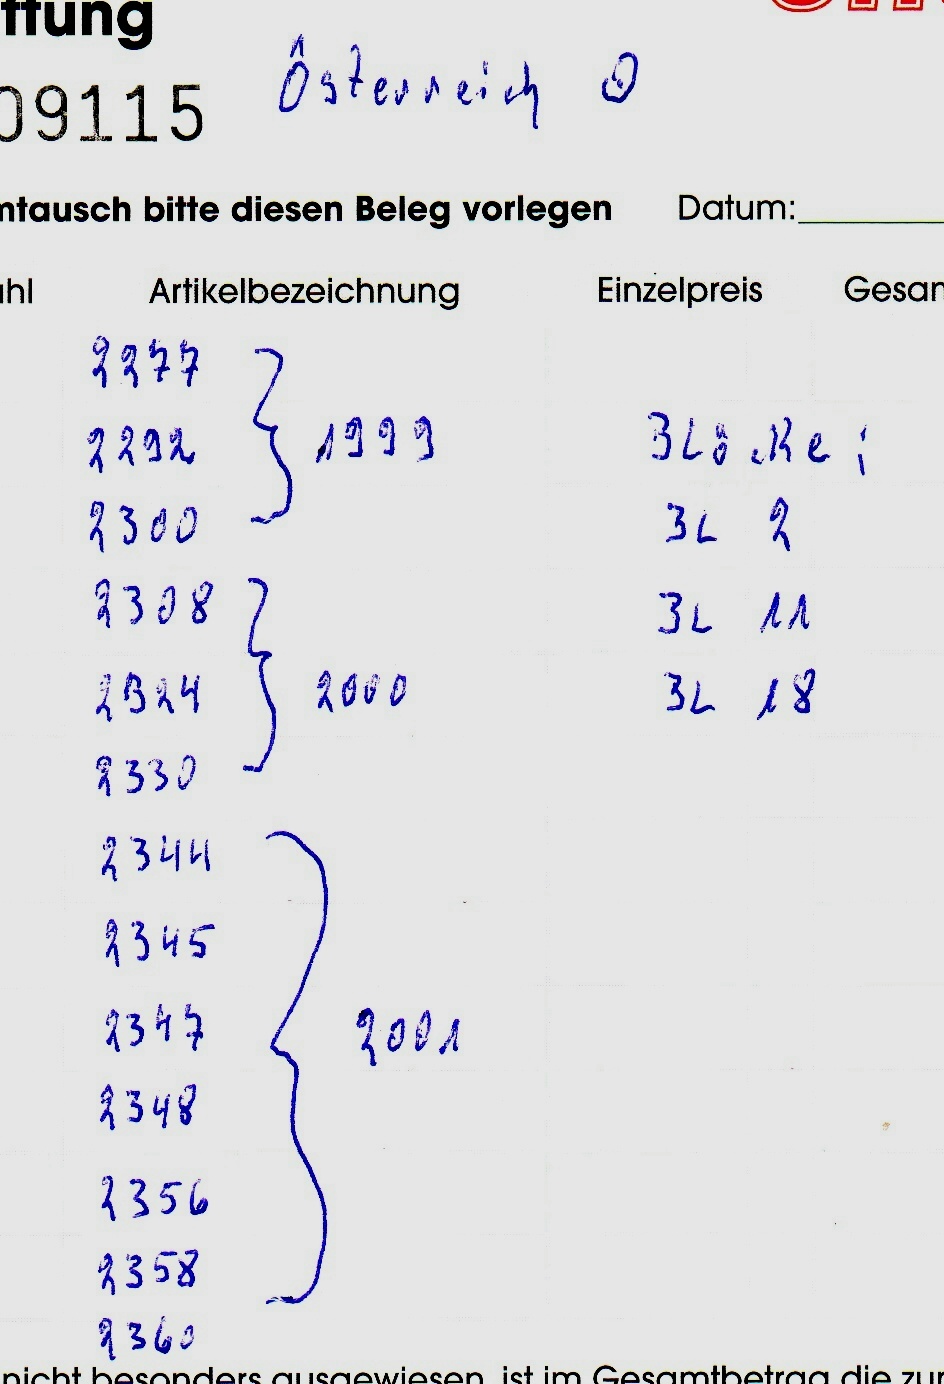 ttung
Österreich O
09115
mtausch bitte diesen Beleg vorlegen Datum:
ahl Artikelbezeichnung Einzelpreis Gesam
2277
2292 1999 3Löcke :
2300 3L 2
2308 3L 11
2324 2000 3L 18
2330
2344
2345
2347 2001
2348
2356
2358
2360
nicht besonders ausgewiesen, ist im Gesamtbetrag die zur